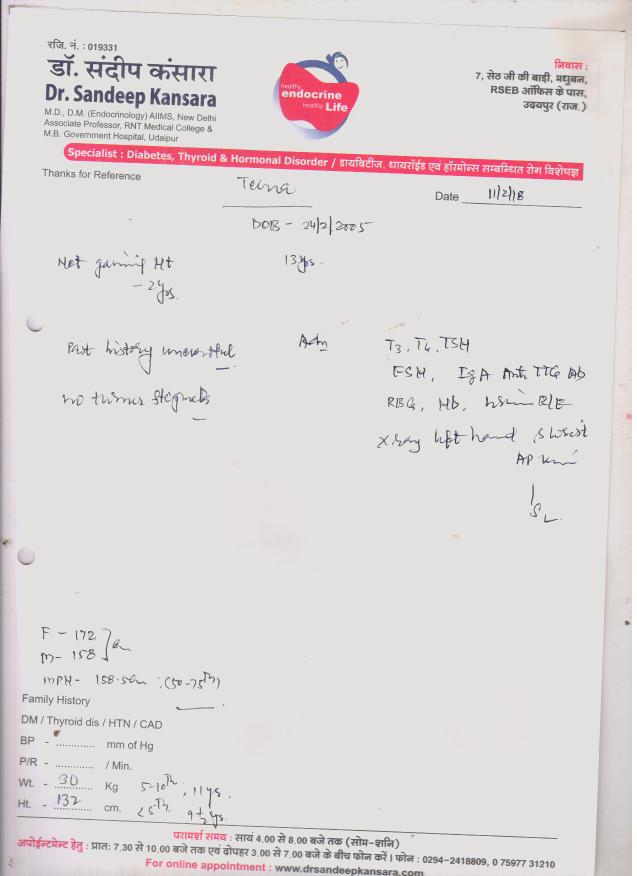 रजि. नं. : 019331
डॉ. संदीप कंसारा
Dr. Sandeep Kansara
M.D., D.M. (Endocrinology) AIIMS, New Delhi
Associate Professor, RNT Medical College &
M.B. Government Hospital, Udaipur
healthy
endocrine
healthy Life
निवास :
7, सेठ जी की बाड़ी, मधुबन,
RSEB ऑफिस के पास,
उदयपुर (राज.)
Specialist : Diabetes, Thyroid & Hormonal Disorder / डायबिटीज, थायरॉईड एवं हॉरमोन्स सम्बन्धित रोग विशेषज्ञ
Thanks for Reference
Teena
Date 11/2/18
DOB - 24/2/2005
Not gaining Ht 13 yrs.
- 2 yrs.
Past history uneventful
Adv
T3, T4, TSH
FSH, IgA Anti TTG Ab
no turner stigmata
RBG, Hb, R/E
X-ray left hand & wrist
AP
F - 172
M - 158
cm
MPH - 158.5cm (50-75th)
Family History
DM / Thyroid dis / HTN / CAD
BP - ............. mm of Hg
P/R - ............. / Min.
Wt. - 30 Kg 5-10th, 11 ys.
Ht. - 132 cm. <5th 9½ ys.
परामर्श समय : सायं 4.00 से 8.00 बजे तक (सोम-शनि)
अपोईन्टमेन्ट हेतु : प्रातः 7.30 से 10.00 बजे तक एवं दोपहर 3.00 से 7.00 बजे के बीच फोन करें । फोन : 0294-2418809, 0 75977 31210
For online appointment : www.drsandeepkansara.com